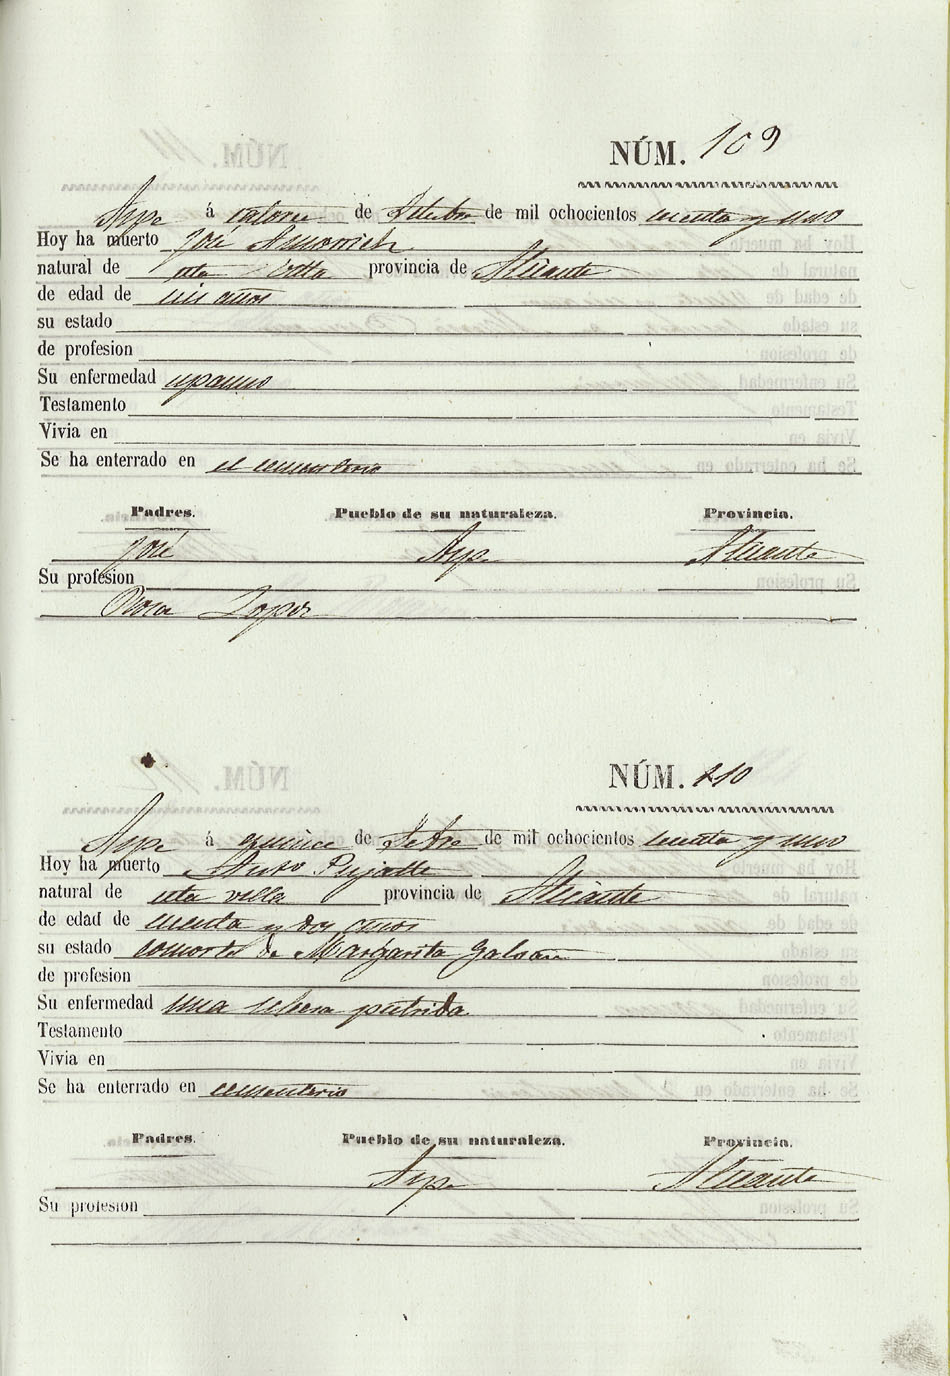 NÚM. 109
Aspe á catorce de Setebre de mil ochocientos sesenta y uno
Hoy ha muerto José
natural de esta Villa provincia de Alicante
de edad de seis años
su estado
de profesion
Su enfermedad espasmo
Testamento
Vivia en
Se ha enterrado en el cementerio
Padres. Pueblo de su naturaleza. Provincia.
José Aspe Alicante
Su profesion
Rosa Lopez
NÚM. 110
Aspe á quince de Setre de mil ochocientos sesenta y uno
Hoy ha muerto Anto Pujalte
natural de esta villa provincia de Alicante
de edad de cuenta y dos años
su estado consorte de Margarita Galvañ
de profesion
Su enfermedad una putrida
Testamento
Vivia en
Se ha enterrado en cementerio
Padres. Pueblo de su naturaleza. Provincia.
Aspe Alicante
Su profesion